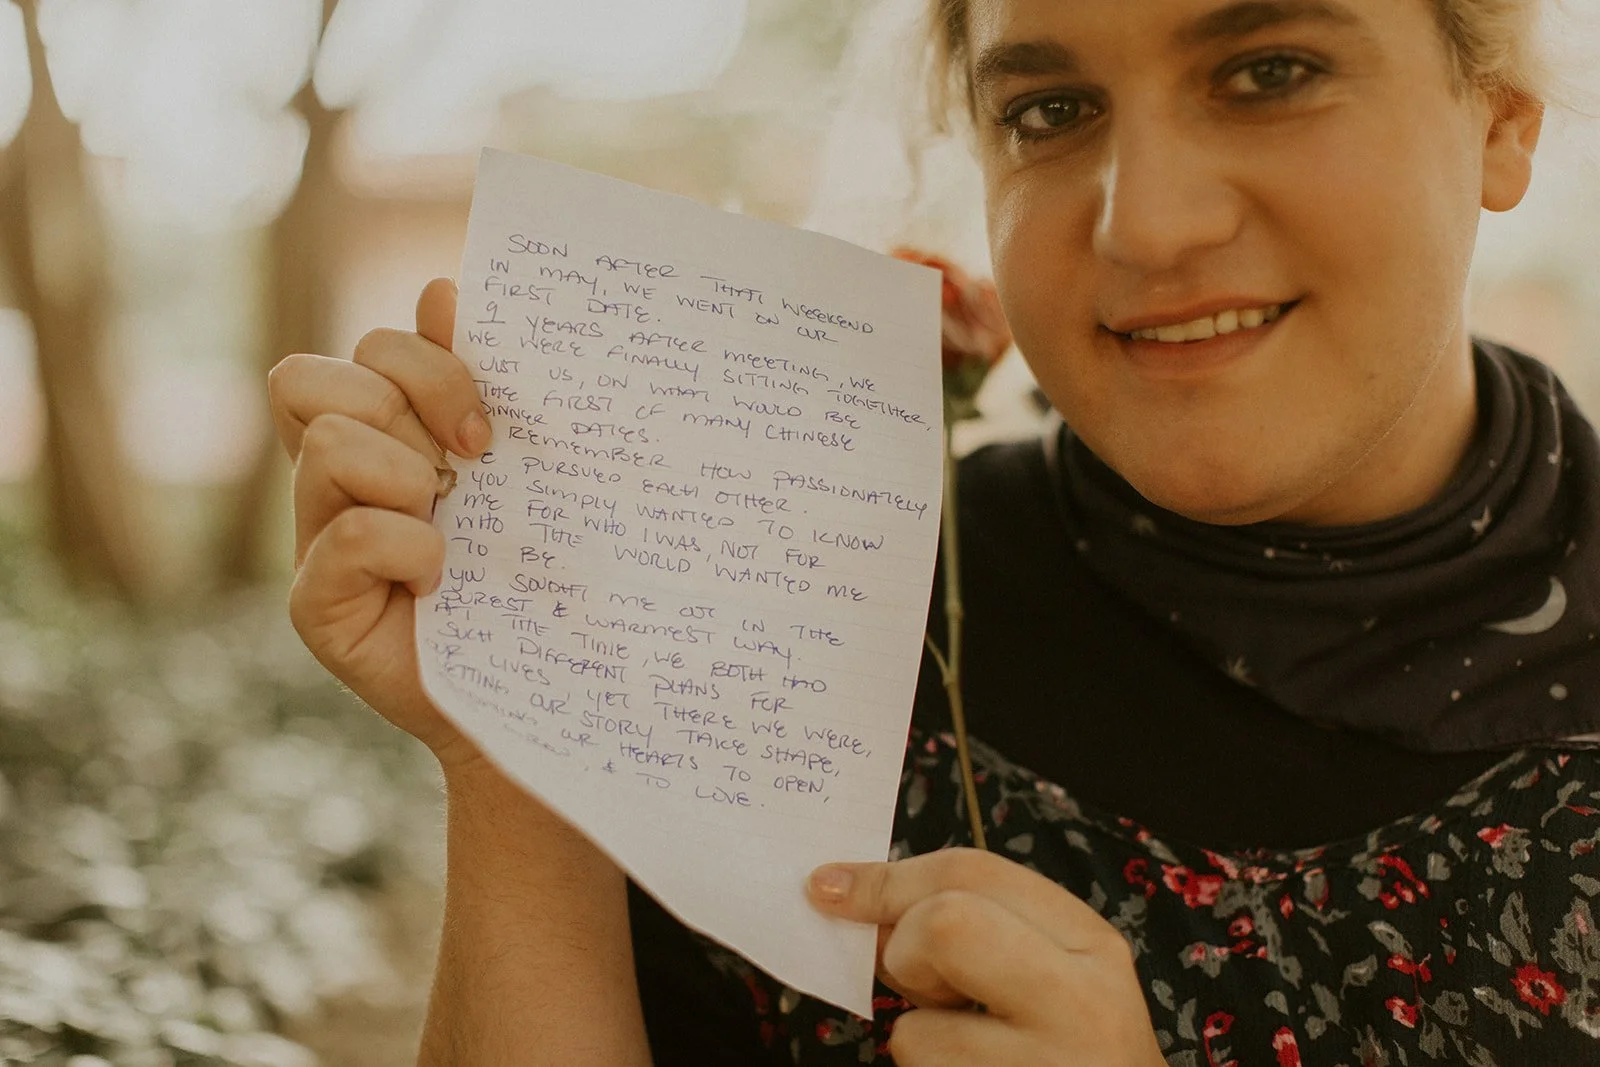 SOON AFTER THAT WEEKEND
IN MAY, WE WENT ON OUR
FIRST DATE.
9 YEARS AFTER MEETING, WE
WE WERE FINALLY SITTING TOGETHER,
JUST US, ON WHAT WOULD BE
THE FIRST OF MANY CHINESE
DINNER DATES.
REMEMBER HOW PASSIONATELY
E PURSUED EACH OTHER.
YOU SIMPLY WANTED TO KNOW
ME FOR WHO I WAS, NOT FOR
WHO THE WORLD WANTED ME
TO BE.
YOU SOUGHT ME OUT IN THE
PUREST & WARMEST WAY.
AT THE TIME, WE BOTH HAD
SUCH DIFFERENT PLANS FOR
OUR LIVES, YET THERE WE WERE,
LETTING OUR STORY TAKE SHAPE,
OUR HEARTS TO OPEN,
, & TO LOVE.